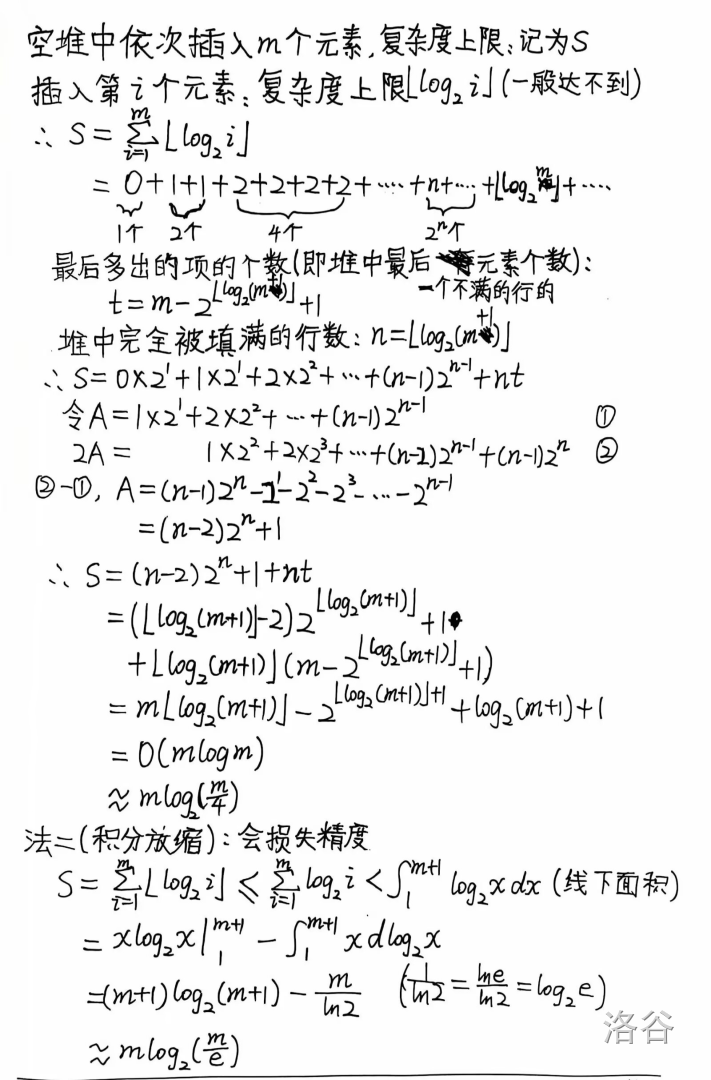 空堆中依次插入m个元素,复杂度上限:记为S
插入第i个元素:复杂度上限⌊log₂i⌋(一般达不到)
∴ S=∑_{i=1}^{m}⌊log₂i⌋
=0+1+1+2+2+2+2+⋯+n+⋯+⌊log₂m⌋+⋯
1个 2个 4个 2ⁿ个
最后多出的项的个数(即堆中最后一个不满的行的元素个数):
t=m-2^{⌊log₂(m+1)⌋}+1
堆中完全被填满的行数:n=⌊log₂(m+1)⌋
∴ S=0×2¹+1×2¹+2×2²+⋯+(n-1)2^{n-1}+nt
令A=1×2¹+2×2²+⋯+(n-1)2^{n-1} ①
2A= 1×2²+2×2³+⋯+(n-2)2^{n-1}+(n-1)2ⁿ ②
②-①, A=(n-1)2ⁿ-2¹-2²-2³-⋯-2^{n-1}
=(n-2)2ⁿ+1
∴ S=(n-2)2ⁿ+1+nt
=(⌊log₂(m+1)⌋-2)2^{⌊log₂(m+1)⌋}+1
+⌊log₂(m+1)⌋(m-2^{⌊log₂(m+1)⌋}+1)
=m⌊log₂(m+1)⌋-2^{⌊log₂(m+1)⌋+1}+log₂(m+1)+1
=O(mlogm)
≈mlog₂(m/4)
法二(积分放缩):会损失精度
S=∑_{i=1}^{m}⌊log₂i⌋≤∑_{i=1}^{m}log₂i<∫_{1}^{m+1}log₂xdx(线下面积)
=xlog₂x|_{1}^{m+1}-∫_{1}^{m+1}xdlog₂x
=(m+1)log₂(m+1)-m/ln2 (1/ln2=lne/ln2=log₂e)
≈mlog₂(m/e)
洛谷